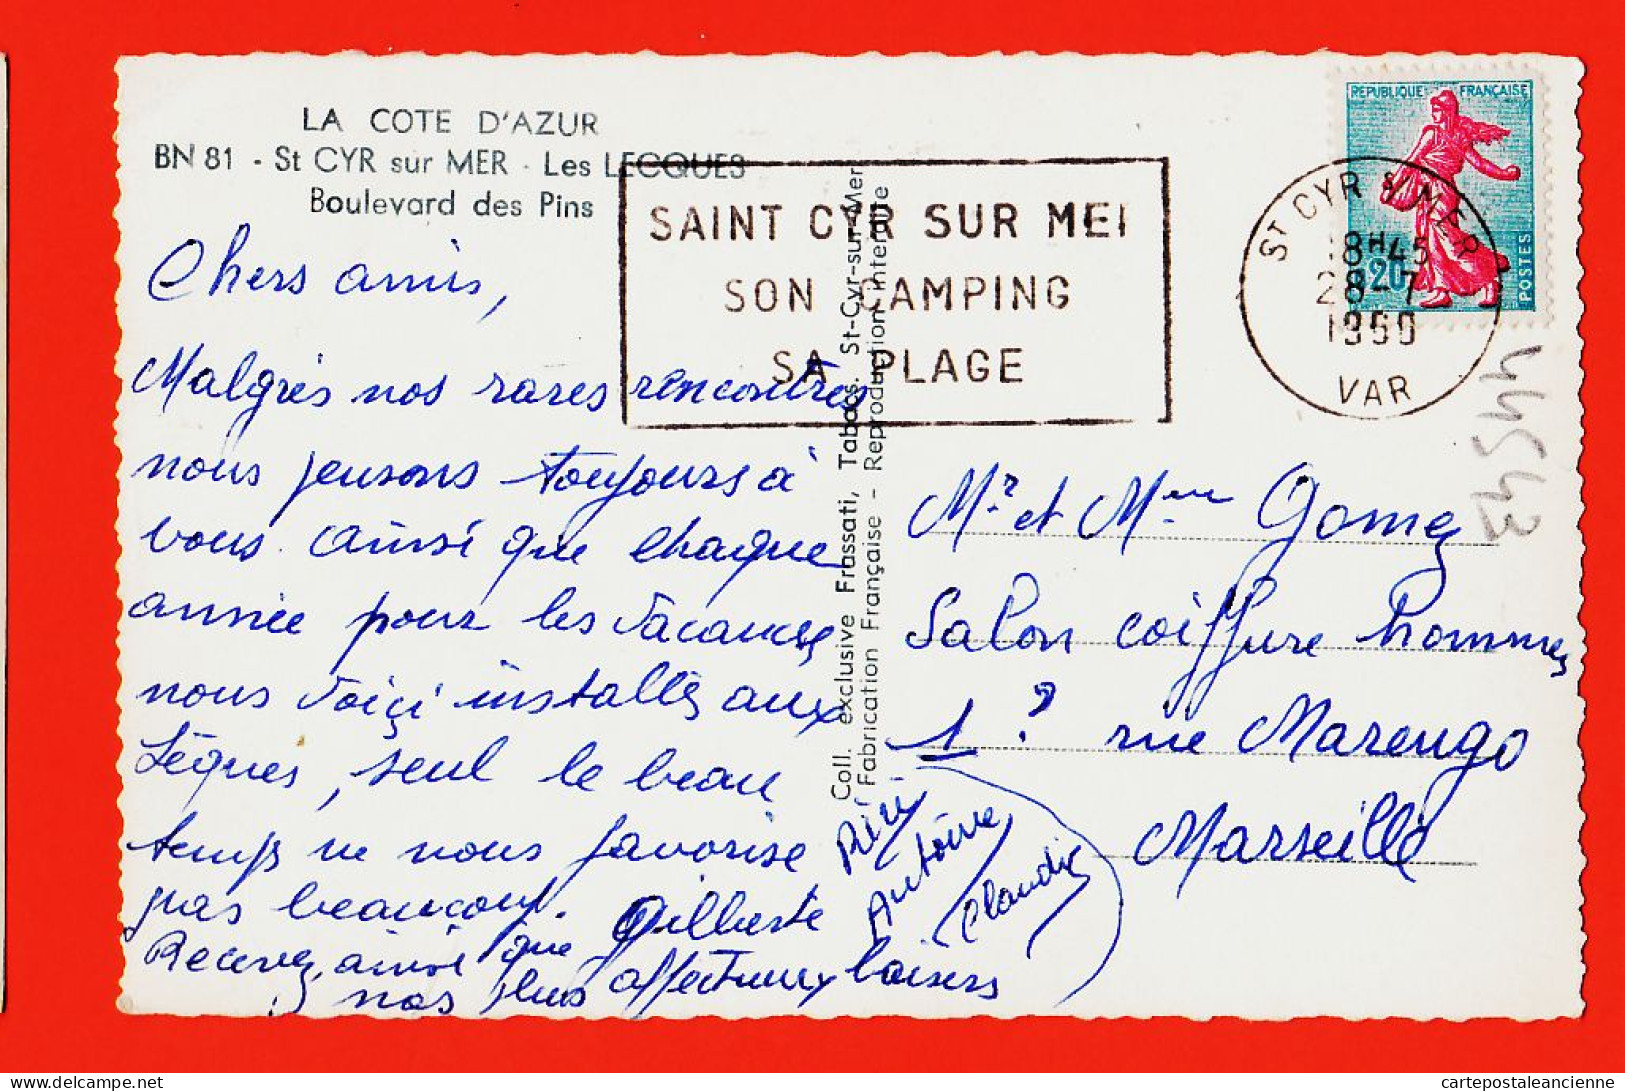 LA COTE D'AZUR
BN 81 - St CYR sur MER - Les LECQUES
Boulevard des Pins
SAINT CYR SUR MEI
SON CAMPING
SA PLAGE
REPUBLIQUE FRANÇAISE
0,20
POSTES
ST CYR S/ MER
18H45
28-7
1960
VAR
44543
Chers amis,
Malgrés nos rares rencontres
nous pensons toujours à
vous. Ainsi que chaque
année pour les vacances
nous voiçi installés aux
Lèques, seul le beau
temps ne nous favorise
pas beaucoup.
Recevez, ainsi que Gilberte
nos plus affectueux baisers
Riri
Antoine
Claudie
Coll. exclusive Frassati, Tabacs. St-Cyr-sur-Mer
Fabrication Française - Reproduction interdite
Mr et Mme Gomez
Salon coiffure hommes
1? rue Marengo
Marseille
delcampe.net
cartepostaleancienne